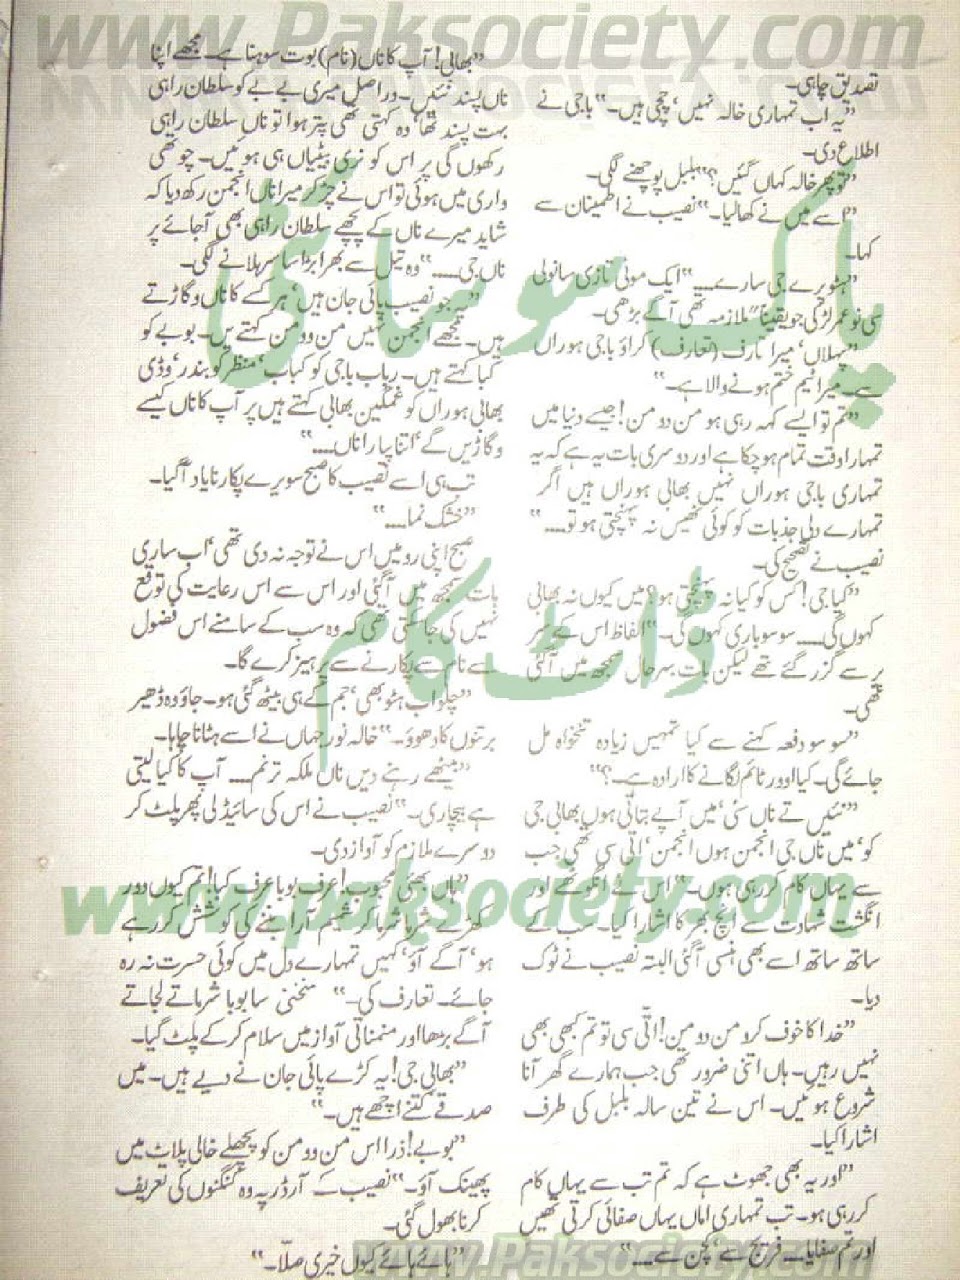 www.Paksociety.com
تصدیق چاہی۔
”یہ اب تمہاری خالہ نہیں‘ چچی ہیں۔“ باجی نے
اطلاع دی۔
”تو پھر خالہ کہاں گئیں؟“ بلبل پوچھنے لگی۔
”اسے میں نے کھا لیا۔“ نصیب نے اطمینان سے
کہا۔
”ہٹو پرے جی سارے۔۔۔۔“ ایک موٹی تازی سانولی
سی نو عمر لڑکی جو یقیناً ملازمہ تھی آگے بڑھی۔
”پہلاں‘ میرا تارف (تعارف) کراؤ باجی ہوراں
سے۔ میرا ٹیم ختم ہونے والا ہے۔“
”تم تو ایسے کہہ رہی ہو من دومن! جیسے دنیا میں
تمہارا وقت تمام ہو چکا ہے اور دوسری بات یہ ہے کہ یہ
تمہاری باجی ہوراں نہیں بھابی ہوراں ہیں اگر
تمہارے دلی جذبات کو کوئی ٹھیس نہ پہنچتی ہو تو۔۔۔۔“
نصیب نے تصحیح کی۔
”کیا جی! کس کو کیا نہ پہنچتی ہو؟ میں کیوں نہ بھابی
کہوں گی۔۔۔۔ سو سو باری کہوں گی۔“ الفاظ اس کے سر
پر سے گزر گئے تھے لیکن بات بہرحال سمجھ میں آ گئی
تھی۔
”سو سو دفعہ کہنے سے کیا تمہیں زیادہ تنخواہ مل
جائے گی۔ کیا اوور ٹائم لگانے کا ارادہ ہے۔؟“
”نئیں تے ناں سئی‘ میں آپے بتاتی ہوں بھابی جی
کو‘ میں ناں جی انجمن ہوں انجمن‘ اتی سی تھی جب
سے یہاں کام کر رہی ہوں۔“ اس نے انگوٹھے اور
انگشت شہادت سے انچ بھر کا اشارا کیا۔ سب کے
ساتھ ساتھ اسے بھی ہنسی آ گئی البتہ نصیب نے ٹوک
دیا۔
”خدا کا خوف کرو من دومن! اتّی سی تو تم کبھی بھی
نہیں رہیں۔ ہاں اتنی ضرور تھی جب ہمارے گھر آنا
شروع ہوئیں۔ اس نے تین سالہ بلبل کی طرف
اشارا کیا۔
”اور یہ بھی جھوٹ ہے کہ تم تب سے یہاں کام
کر رہی ہو۔ تب تمہاری اماں یہاں صفائی کرتی تھیں
اور تم صفایا۔۔۔۔ فریج سے‘ کچن سے۔۔۔۔“
”بھابی! آپ کا ناں (نام) بوت سوہنا ہے۔ مجھے اپنا
ناں پسند نئیں۔ دراصل میری بے بے کو سلطان راہی
بہت پسند تھا‘ وہ کہتی تھی پتر ہوا تو ناں سلطان راہی
رکھوں گی پر اس کو نری بیٹیاں ہی ہوئیں۔ چوتھی
واری میں ہوئی تو اس نے چڑ کر میرا ناں انجمن رکھ دیا کہ
شاید میرے ناں کے پچھے سلطان راہی بھی آ جائے پر
ناں جی۔۔۔۔“ وہ تیل سے بھرا بڑا سا سر ہلانے لگی۔
”یہ جو نصیب پائی جان ہیں‘ ہر کے کا ناں وگاڑتے
ہیں۔ مجھے انجمن نئیں من دومن کہتے ہیں۔ بوبے کو
کیا کہتے ہیں۔ رباب باجی کو کباب‘ منظر کو بندر‘ وڈی
بھابی ہوراں کو غمگین بھابی کہتے ہیں پر آپ کا ناں کیسے
وگاڑیں گے‘ اتنا پیارا ناں۔۔۔۔“
تب ہی اسے نصیب کا صبح سویرے پکارنا یاد آ گیا۔
”خشک نما۔۔۔۔“
صبح اپنی رو میں اس نے توجہ نہ دی تھی‘ اب ساری
بات سمجھ میں آ گئی اور اس سے اس رعایت کی توقع
نہیں کی جا سکتی تھی کہ وہ سب کے سامنے اس فضول
سے نام سے پکارنے سے پرہیز کرے گا۔
”چلو اب ہٹو بھی‘ جم کے ہی بیٹھ گئی ہو۔ جاؤ وہ ڈھیر
برتنوں کا دھوؤ۔“ خالہ نور جہاں نے اسے ہٹانا چاہا۔
”بیٹھے رہنے دیں ناں ملکہ ترنم۔۔۔۔ آپ کا کیا لیتی
ہے بیچاری۔“ نصیب نے اس کی سائیڈ لی پھر پلٹ کر
دوسرے ملازم کو آواز دی۔
”ہاں بھئی محبوب! عرف بوبا عرف کیا! تم کیوں دور
کھڑے شرما شرما کر شمیم آرا بننے کی کوشش کر رہے
ہو‘ آگے آؤ‘ کہیں تمہارے دل میں کوئی حسرت نہ رہ
جائے۔ تعارف کی۔“ سخنی سا بوبا شرماتے لجاتے
آگے بڑھا اور منمناتی آواز میں سلام کر کے پلٹ گیا۔
”بھابی جی! یہ کڑے پائی جان نے دیے ہیں۔ میں
صدقے کتنے اچھے ہیں۔“
”بوبے! ذرا اس من دومن کو پچھلے خالی پلاٹ میں
پھینک آؤ۔“ نصیب کے آرڈر پہ وہ کنگنوں کی تعریف
کرنا بھول گئی۔
”ہائے ہائے کیوں خیری صلّا۔“
پاک سوسائٹی
ڈاٹ کام
www.paksociety.com
www.Paksociety.com